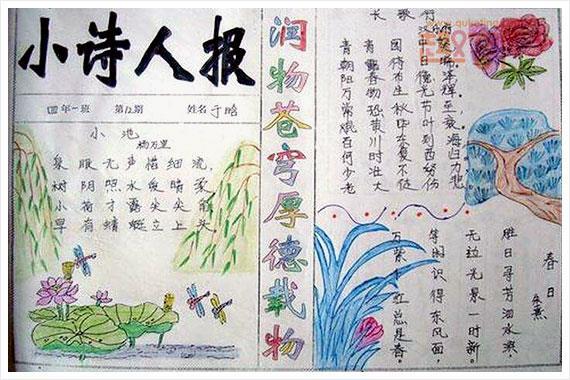 小诗人报
四年一班 第12期 姓名 于晗
小池
杨万里
泉眼无声惜细流,
树阴照水爱晴柔
小荷才露尖尖
早有蜻蜓立上头。
润物苍穹厚德载物
长歌行
青青园中葵,
朝露待日晞,
阳春布德泽,
万物生光辉,
常恐秋节至,
焜黄华叶衰,
百川东到海,
何时复西归,
少壮不努力,
老大徒伤悲
春日
朱熹
胜日寻芳泗水滨,
无边光景一时新。
等闲识得东风面,
万紫千红总是春。